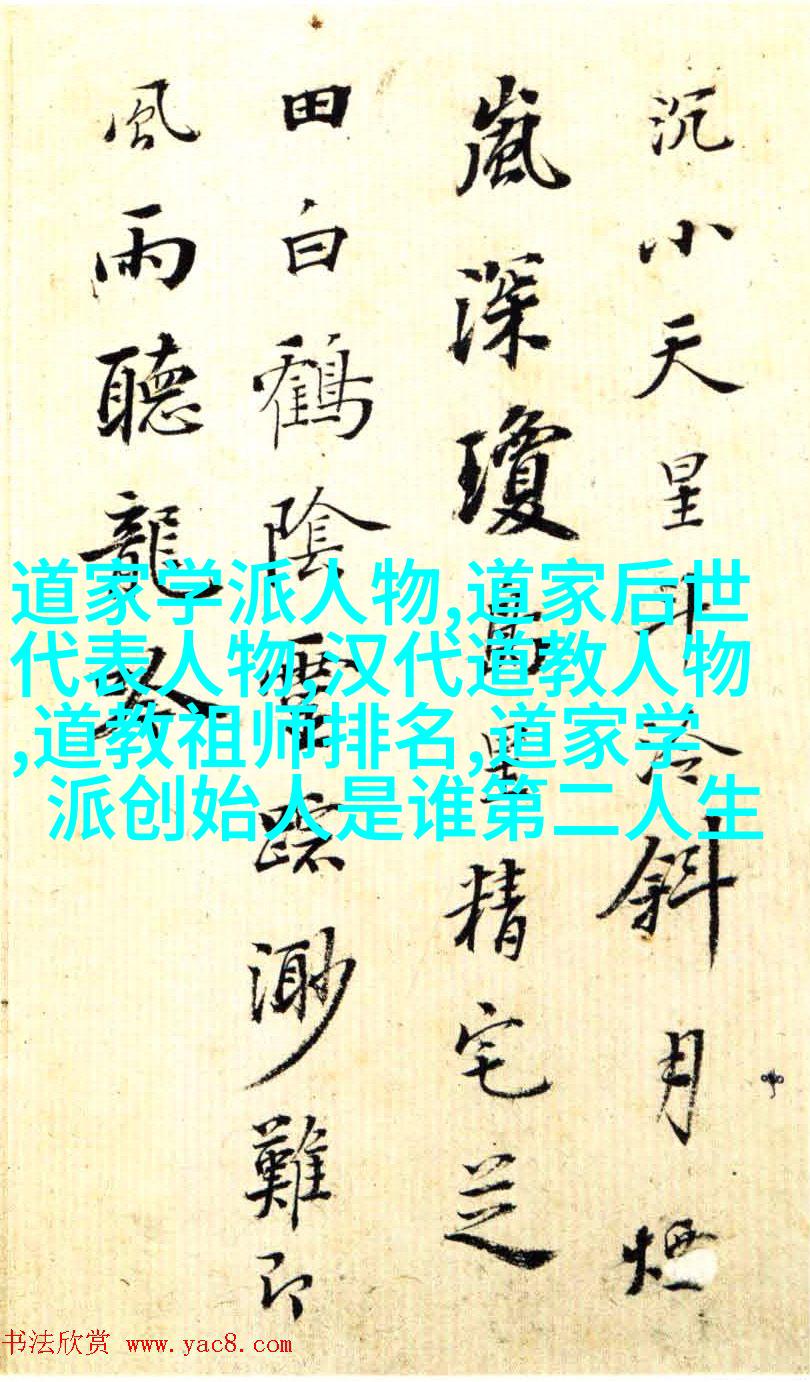 沉小天星斗冷斜月煙
嵐深瓊精宅芝
田白鶴陰靈蹤渺難即
風雨聽龍
道家学派人物,道家后世
代表人物,汉代道教人物
,道教祖师排名,道家学
派创始人是谁第二人生
书法欣赏 www.yac8.com